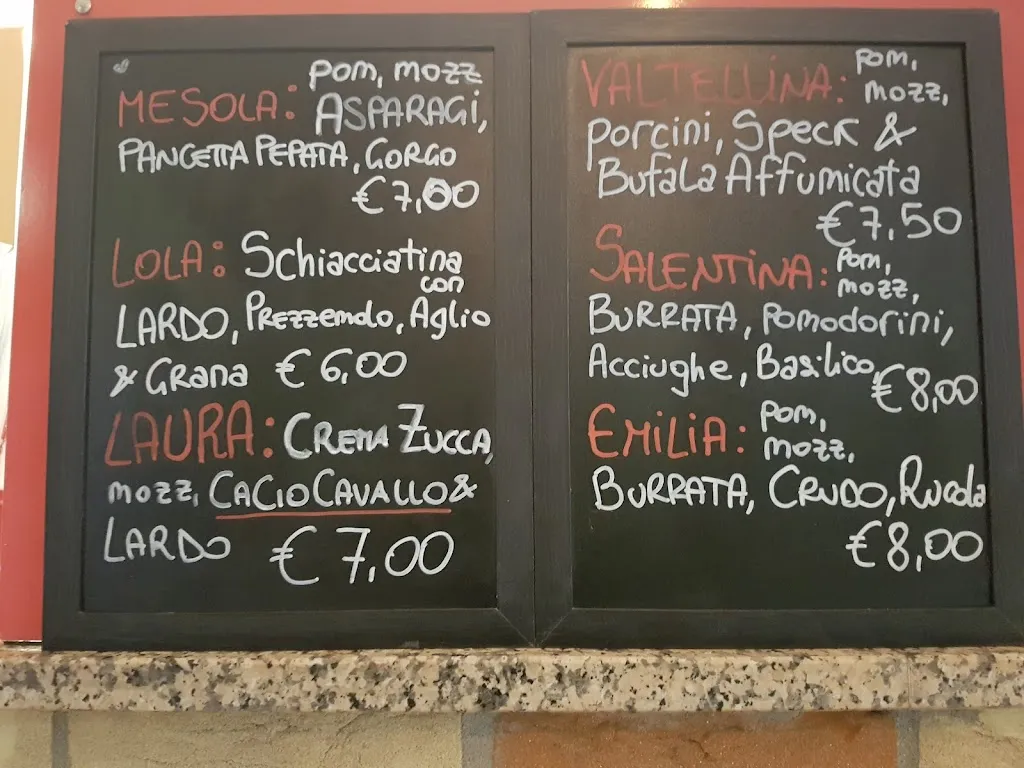 MESOLA: POM, MOZZ
ASPARAGI,
PANCETTA PEPATA, GORGO
€ 7,00
LOLA: Schiacciatina
con
LARDO, Prezzemolo, Aglio
& Grana € 6,00
LAURA: CREMA ZUCCA,
mozz, CACIOCAVALLO &
LARDO € 7,00
VALTELLINA: POM,
mozz,
Porcini, Speck &
Bufala Affumicata
€ 7,50
SALENTINA: Pom,
mozz,
BURRATA, Pomodorini,
Acciughe, Basilico,
€ 8,00
EMILIA: Pom,
mozz,
BURRATA, CRUDO, Rucola
€ 8,00